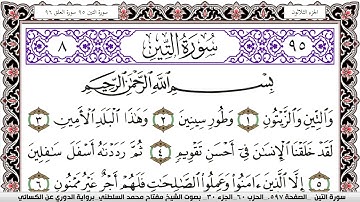 الجزء الثلاثون
سورة التين ٩٥ سورة العلق ٩٦
٩٥ سُورَةُ التِّينِ ٨
بِسْمِ اللَّهِ الرَّحْمَٰنِ الرَّحِيمِ
وَالتِّينِ وَالزَّيْتُونِ ١ وَطُورِ سِينِينَ ٢ وَهَٰذَا الْبَلَدِ الْأَمِينِ ٣
لَقَدْ خَلَقْنَا الْإِنسَٰنَ فِي أَحْسَنِ تَقْوِيمٍ ٤ ثُمَّ رَدَدْنَٰهُ أَسْفَلَ سَٰفِلِينَ
٥ إِلَّا الَّذِينَ ءَامَنُوا وَعَمِلُوا الصَّٰلِحَٰتِ فَلَهُمْ أَجْرٌ غَيْرُ مَمْنُونٍ ٦
سورة التين الصفحة ٥٩٧ الحزب ٦٠ الجزء ٣٠ بصوت الشيخ مفتاح محمد السلطني برواية الدوري عن الكسائي